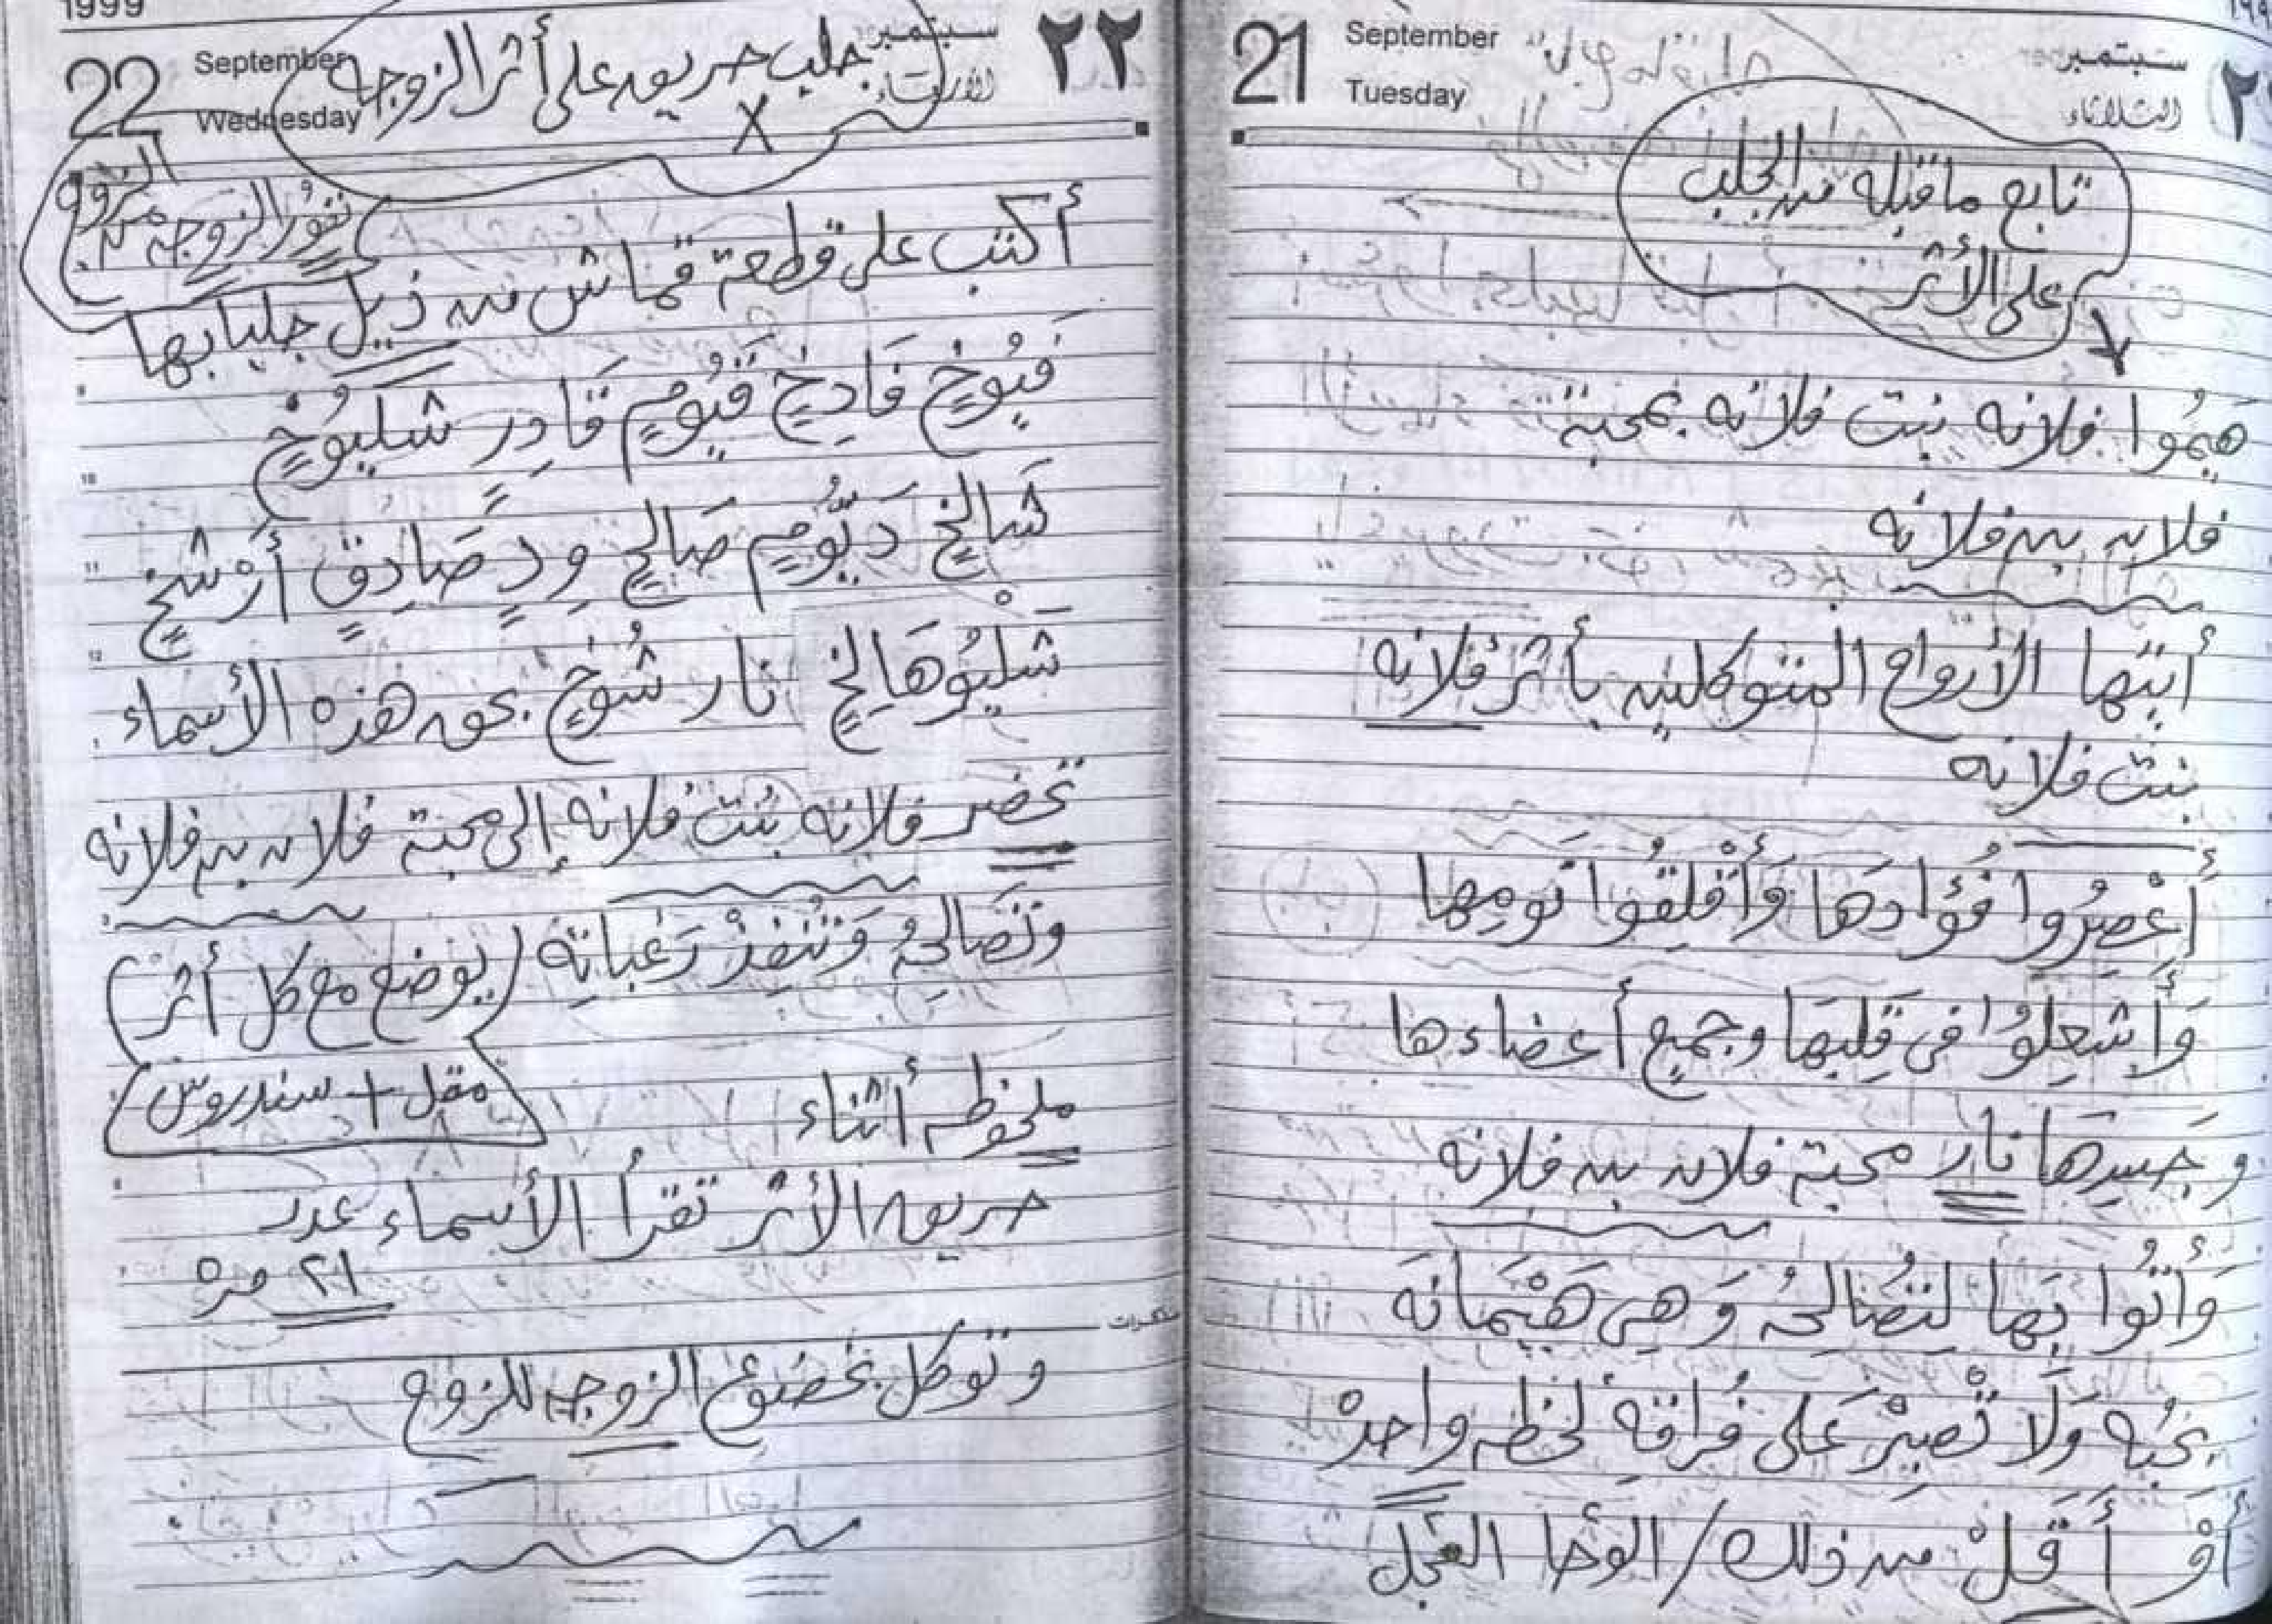 ١٩٩
21
September
Tuesday
سبتمبر
الثلاثاء
تابع ما قبله من الجلب
على الأثر
هَيِمُوا فلانه بنت فلانه بمحبة
فلان بن فلانه
أيتها الأرواح المتوكلين بأثر فلانه
بنت فلانه
أَعْصِرُوا فُؤَادَهَا وَأَقْلِقُوا نَومِها
وَأَشعِلوُا فى قَلبِهَا وجميع أعضاءها
و جَسدِهَا نار محبة فلان بن فلانه
وَأتُوا بَها لِتُصَالِحُه وَ هِى هَيْمَانَه
بحُبُه وَلَا تَصبِرْ عَلى فُراقِهِ لحظه واحدْ
أوْ أَقَلْ مِن ذلك / الوَحَا العَجَل
1999
22
September
Wednesday
سبتمبر
الأربعاء
٢٢
جلب حريق على أثر الزوجه
X
نفُورُ الزوجه من
الزوج
أكتب على قطعة قماش من ذيل جلبابها
فَيُوخٍ فَادِخٍ قَيُومٍ قَادِرٍ شَليُوخٍ
شَالخٍ دَيُّومٍ صَالحٍ وِدٍ صَادِقٍ أَرْشخٍ
شَلْيُوهَالخٍ نار شُوخٍ بحق هذه الأسماء
تحضر فلانه بنت فلانه إلى محبة فلان بن فلانه
وتصَالحهُ وَتُنفِذْ رَغَباتِه (يوضع مع كل أثر)
مقل + سندروس
ملحوظه أثناء
حريق الأثر تقرأ الأسماء عدد
٢١ مره
مذكرات
وتوكل بخضوع الزوجه للزوج